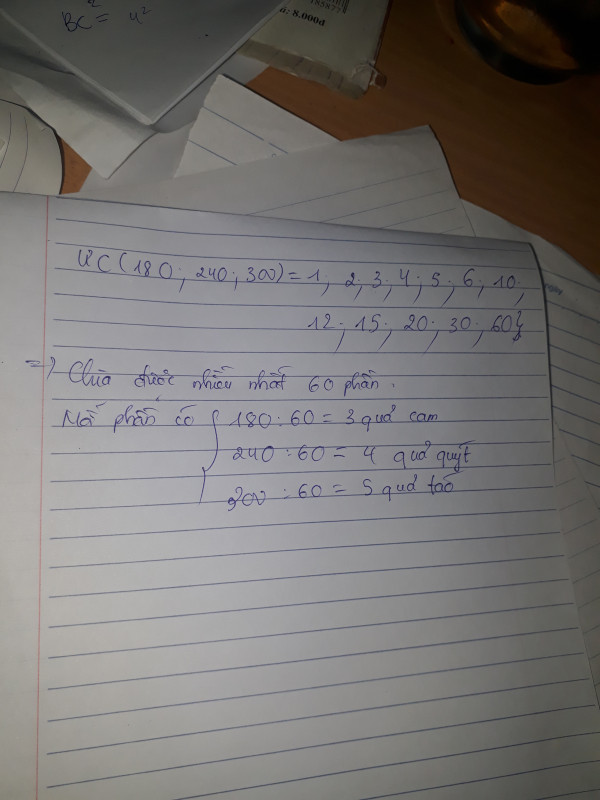 BC² = 4²
: 8.000đ
ƯC(180; 240; 300) = 1; 2; 3; 4; 5; 6; 10;
12; 15; 20; 30; 60}
=> Chia được nhiều nhất 60 phần.
Mỗi phần có { 180 : 60 = 3 quả cam
240 : 60 = 4 quả quýt
300 : 60 = 5 quả táo